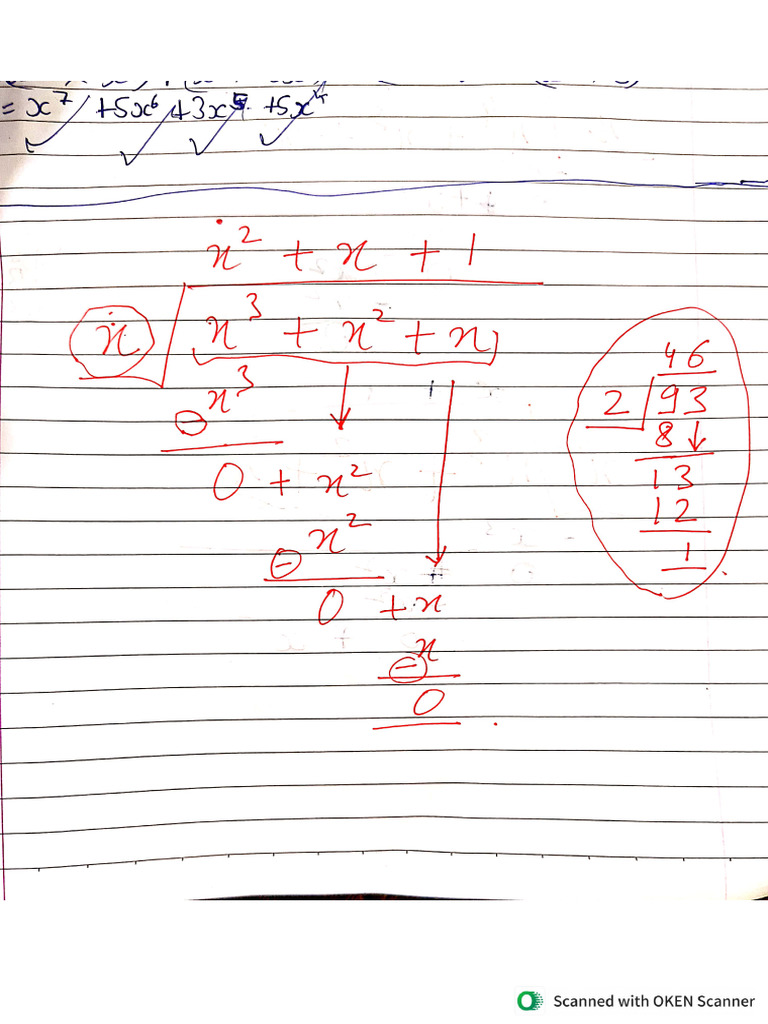 = x⁷ + 5x⁶ + 3x⁵ + 5x⁴
x² + x + 1
x √ x³ + x² + x
⊖ x³
0 + x²
⊖ x²
0 + x
⊖ x
0
46
2 | 93
8 ↓
13
12
1
Scanned with OKEN Scanner